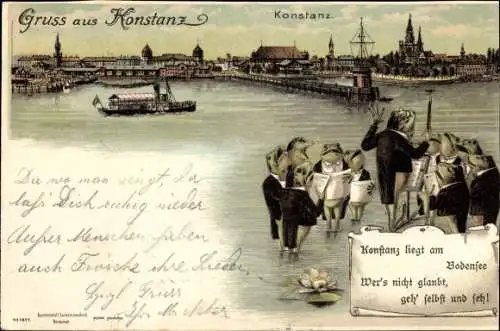 Gruss aus Konstanz
Konstanz.
Da wo man singt, da
laß' Dich ruhig nieder
Außer Menschen haben
auch Frösche ihre Lieder.
Gruß
Konstanz liegt am
Bodensee
Wer's nicht glaubt,
geh' selbst und seh!